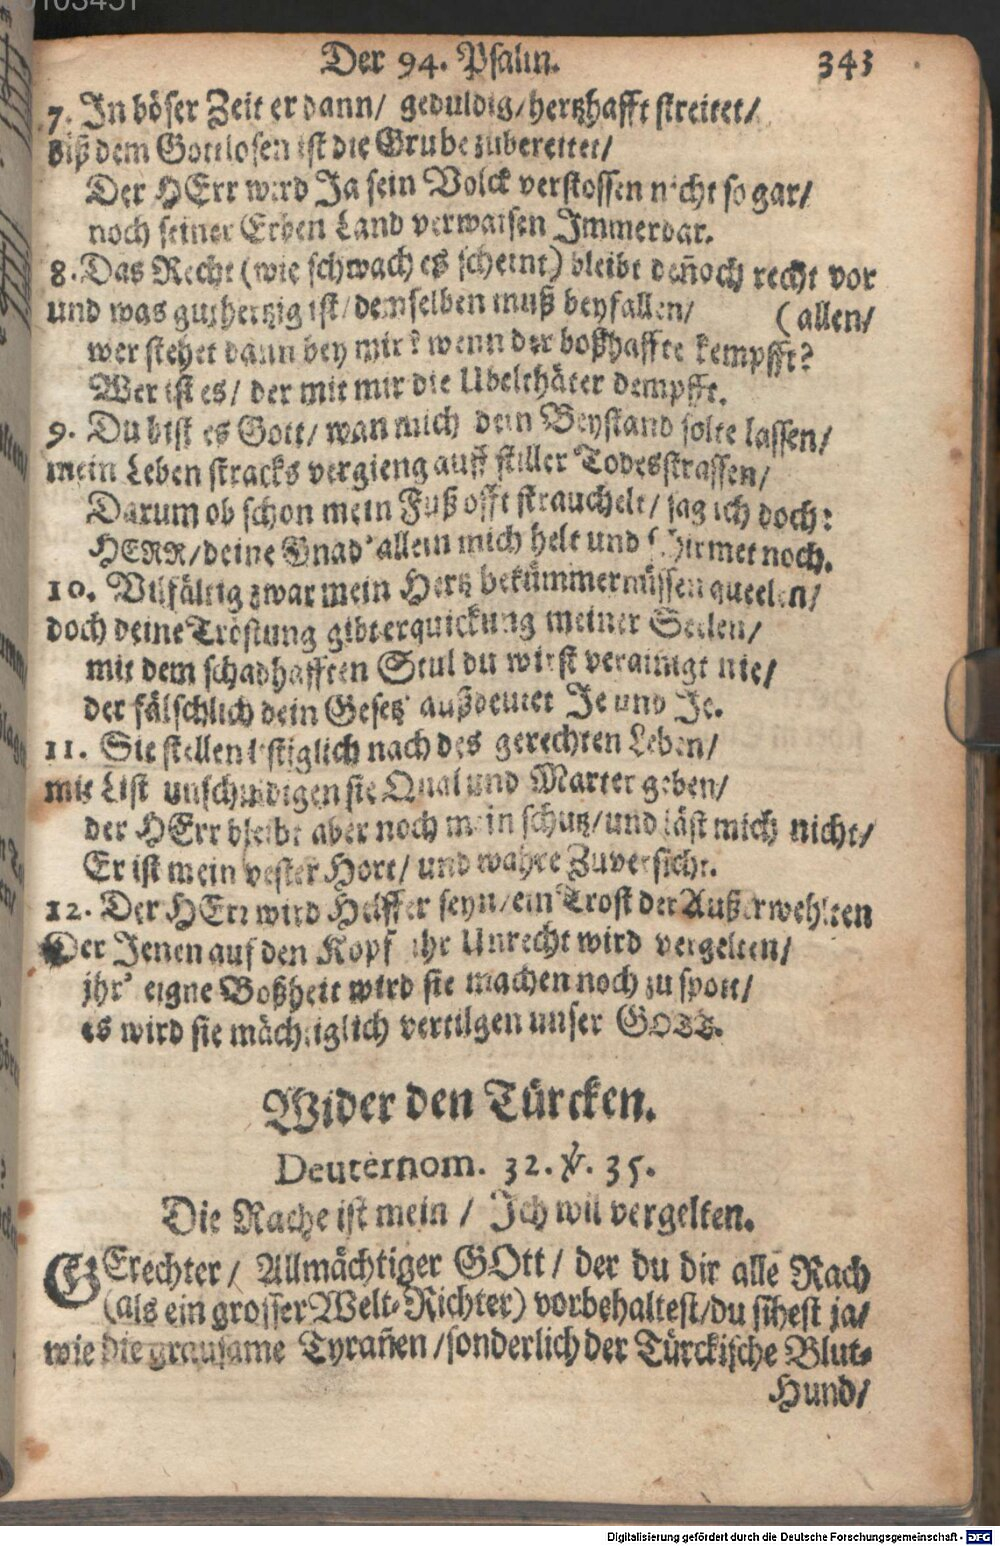 Der 94. Psalm. 343
7. In böser Zeit er dann/ geduldig/ hertzhafft streitet/
biß dem Gottlosen ist die Grube zubereitet/
Der HErr werd Ja sein Volck verstossen nicht so gar/
noch seiner Erben Land verwaisen Immerdar.
8. Das Recht (wie schwach es scheint) bleibt deñoch recht vor
und was guthertzig ist/ demselben muß beyfallen/ (allen/
wer stehet dann bey mir? wenn der boßhaffte kempfft?
Wer ist es/ der mit mir die Ubelthäter dempfft.
9. Du bist es Gott/ wan mich dein Beystand solte lassen/
mein Leben stracks vergieng auff stiller Todesstrassen/
Darum ob schon mein Fuß offt strauchelt/ sag ich doch:
HERR/ deine Gnad' allein mich helt und schirmet noch.
10. Vilfältig zwar mein Hertz bekümmernüssen queelen/
doch deine Tröstung gibt erquickung meiner Seelen/
mit dem schadhafften Stul du wirst verainigt nie/
der fälschlich dein Gesetz' außdeutet Je und Je.
11. Sie stellen listiglich nach des gerechten Leben/
mit List unschuldigen sie Qual und Marter geben/
der HErr bleibt aber noch mein schutz/ und läst mich nicht/
Er ist mein vester Hort/ und wahre Zuversicht.
12. Der HErr wird Helffer seyn/ ein Trost der Außerwehlten
Der Jenen auf den Kopf ihr Unrecht wird vergelten/
jhr' eigne Boßheit wird sie machen noch zu spott/
es wird sie mächtiglich vertilgen unser GOTT.
Wider den Türcken.
Deuternom. 32. ℣. 35.
Die Rache ist mein / Ich wil vergelten.
GErechter/ Allmächtiger GOtt/ der du dir alle Rach
(als ein grosser Welt-Richter) vorbehaltest/ du sihest ja/
wie die grausame Tyrañen/ sonderlich der Türckische Blut-
Hund/
Digitalisierung gefördert durch die Deutsche Forschungsgemeinschaft - DFG